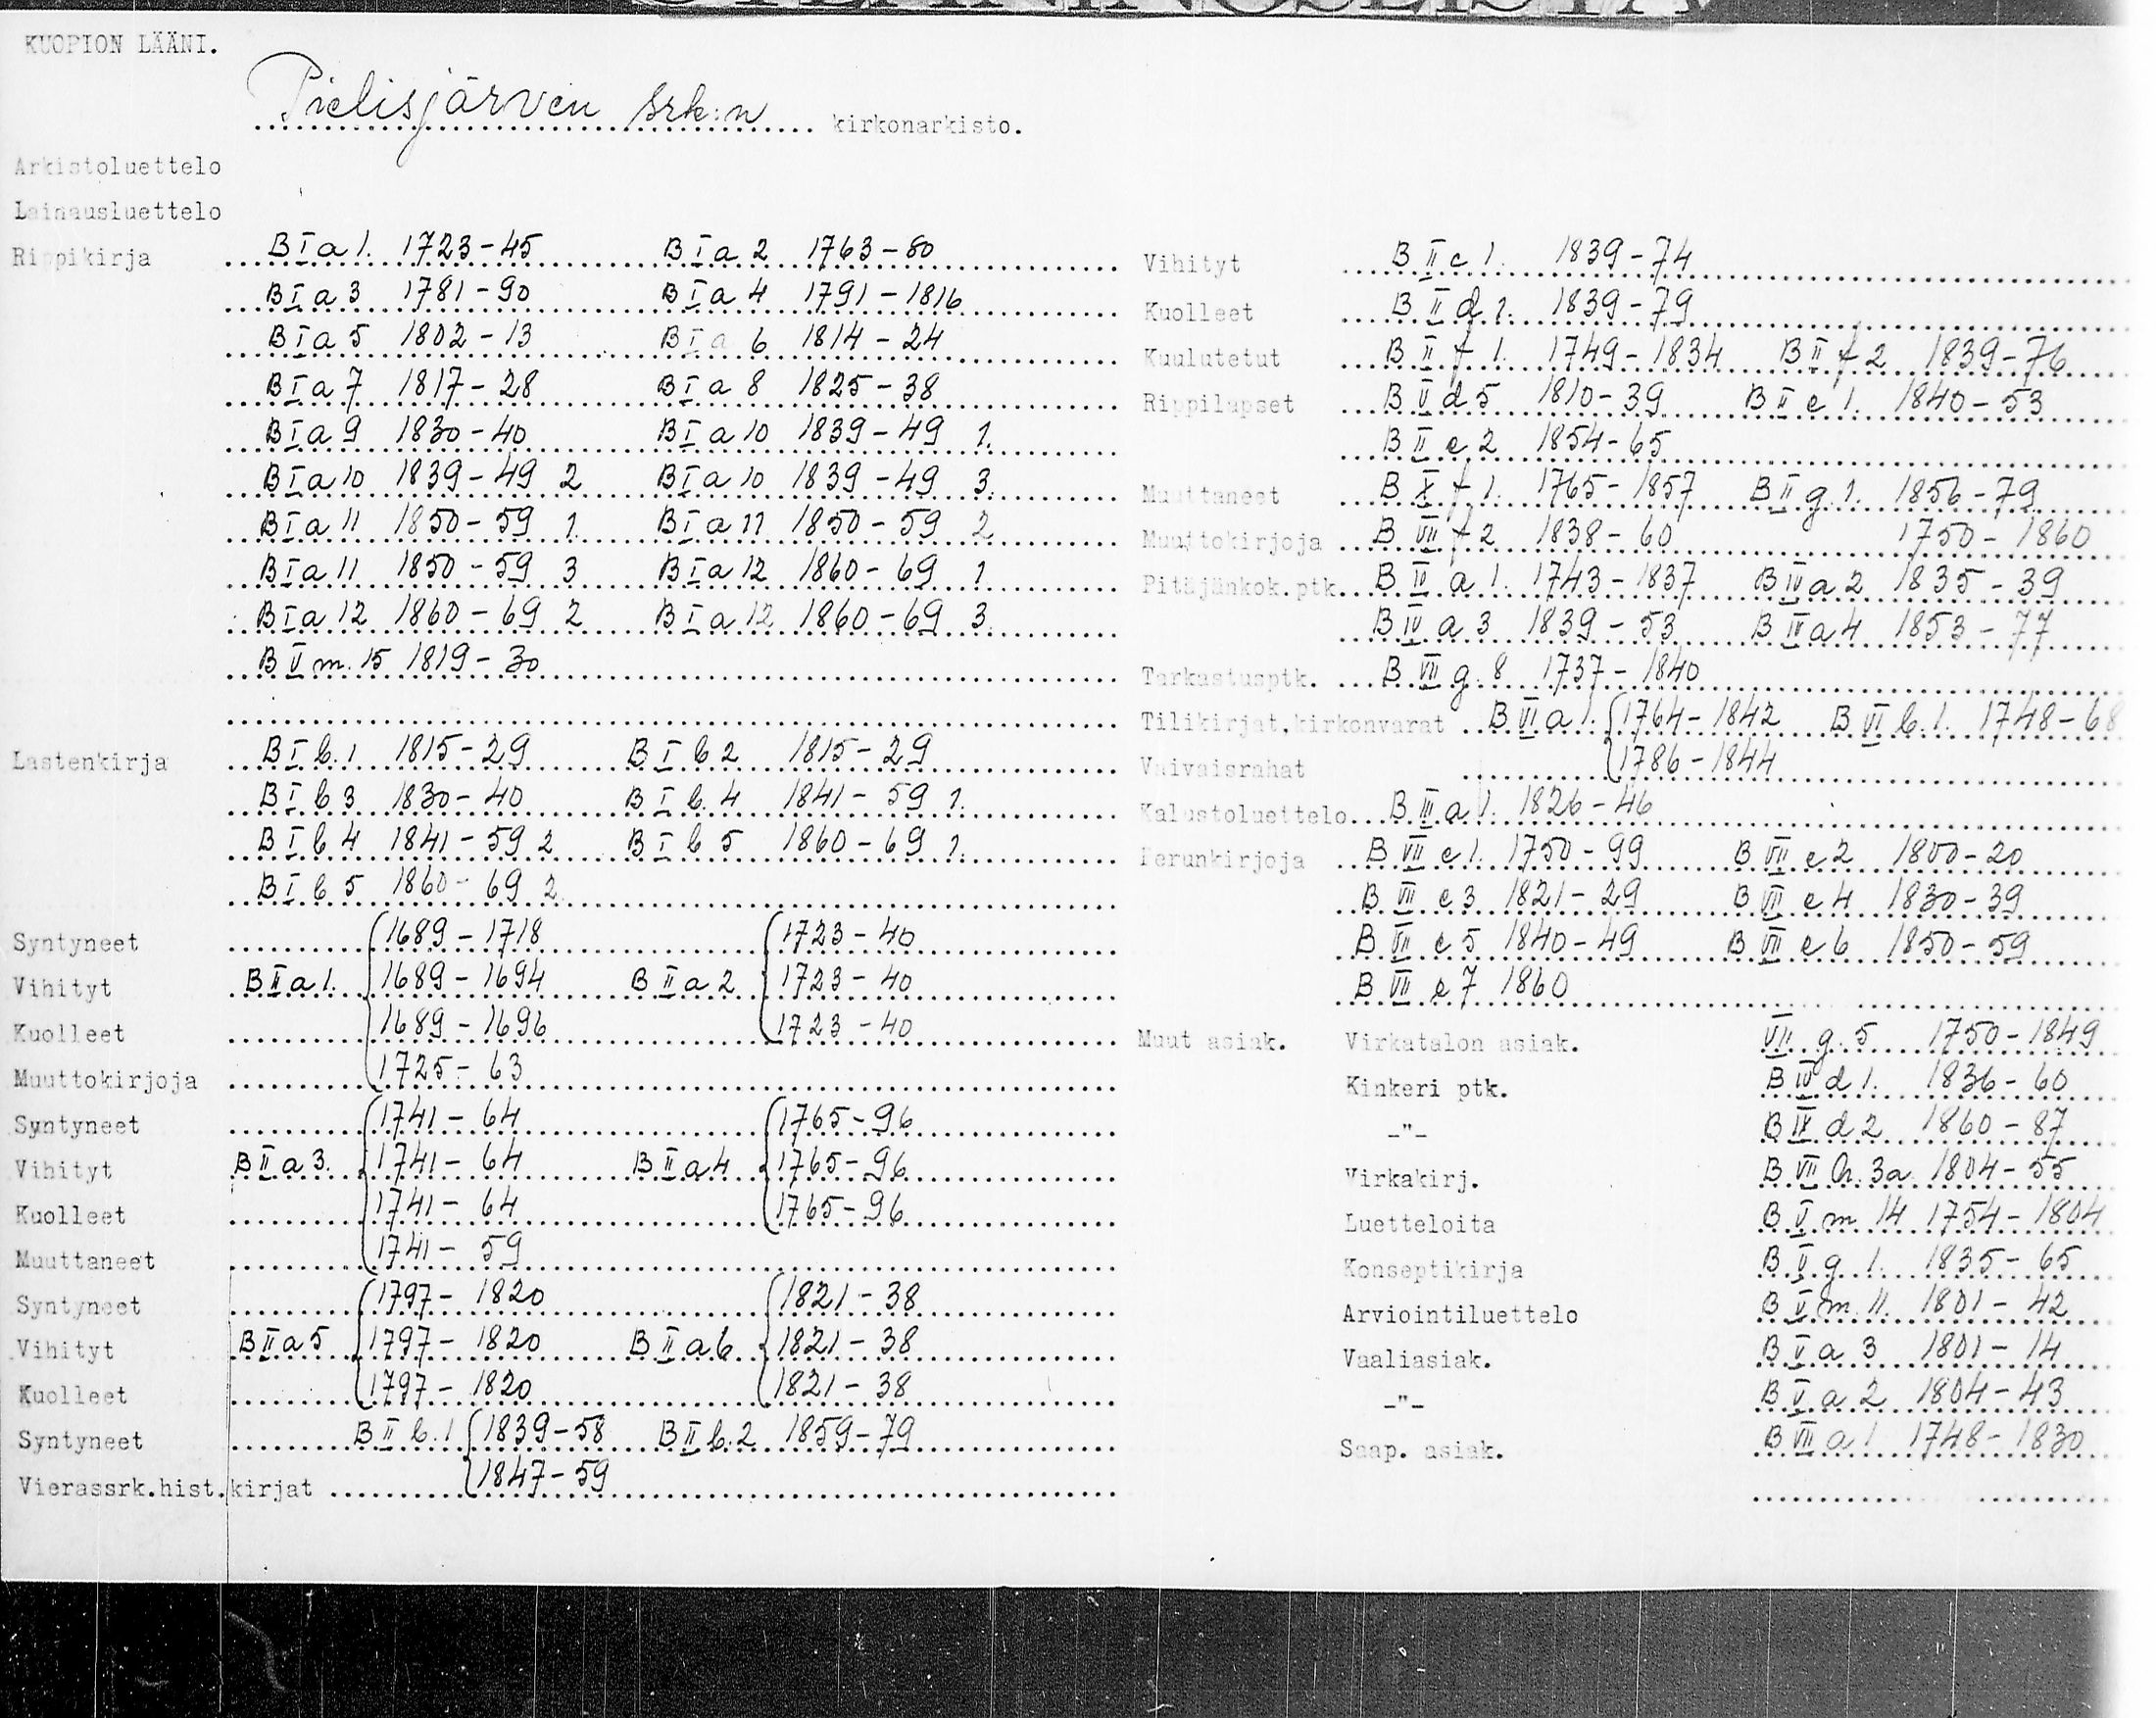 KUOPION LÄÄNI.
Pielisjärven srk:n kirkonarkisto.
Arkistoluettelo
Lainausluettelo
Rippikirja B I a 1. 1723-45 B I a 2 1763-80
B I a 3 1781-90 B I a 4 1791-1816
B I a 5 1802-13 B I a 6 1814-24
B I a 7 1817-28 B I a 8 1825-38
B I a 9 1830-40 B I a 10 1839-49 1.
B I a 10 1839-49 2 B I a 10 1839-49 3.
B I a 11 1850-59 1. B I a 11 1850-59 2
B I a 11 1850-59 3 B I a 12 1860-69 1.
B I a 12 1860-69 2 B I a 12 1860-69 3.
B V m. 15 1819-30
Lastenkirja B I b. 1 1815-29 B I b 2 1815-29
B I b 3 1830-40 B I b. 4 1841-59 1.
B I b 4 1841-59 2 B I b 5 1860-69 1.
B I b 5 1860-69 2
Syntyneet 1689-1718 1723-40
Vihityt B II a 1. 1689-1694 B II a 2 1723-40
Kuolleet 1689-1696 1723-40
Muuttokirjoja 1725-63
Syntyneet 1741-64 1765-96
Vihityt B II a 3. 1741-64 B II a 4 1765-96
Kuolleet 1741-64 1765-96
Muuttaneet 1741-59
Syntyneet 1797-1820 1821-38
Vihityt B II a 5 1797-1820 B II a 6 1821-38
Kuolleet 1797-1820 1821-38
Syntyneet B II b. 1 1839-58 B II b. 2 1859-79
Vierassrk.hist.kirjat 1847-59
Vihityt B II c 1. 1839-74
Kuolleet B II d 1. 1839-79
Kuulutetut B II f 1. 1749-1834 B II f 2 1839-76
Rippilapset B V d 5 1810-39 B II e 1. 1840-53
B II e 2 1854-65
Muuttaneet B X f 1. 1765-1857 B II g. 1. 1856-79
Muuttokirjoja B VII f 2 1838-60 1750-1860
Pitäjänkok.ptk. B IV a 1. 1743-1837 B IV a 2 1835-39
B IV a 3 1839-53 B IV a 4 1853-77
Tarkastusptk. B VII g. 8 1737-1840
Tilikirjat,kirkonvarat B VI a 1. 1764-1842 B VI b. 1. 1748-68
Vaivaisrahat 1786-1844
Kalustoluettelo B III a 1. 1826-46
Perunkirjoja B VII e 1. 1750-99 B VII e 2 1800-20
B VII e 3 1821-29 B VII e 4 1830-39
B VII e 5 1840-49 B VII e 6 1850-59
B VII e 7 1860
Muut asiak. Virkatalon asiak. VII g. 5 1750-1849
Kinkeri ptk. B IV d 1. 1836-60
-"- B IX d 2 1860-87
Virkakirj. B VII h. 3a 1804-55
Luetteloita B V m 14 1754-1804
Konseptikirja B V g 1. 1835-65
Arviointiluettelo B V m. 11. 1801-42
Vaaliasiak. B V a 3 1801-14
-"- B V a 2 1804-43
Saap. asiak. B VII a 1 1748-1830